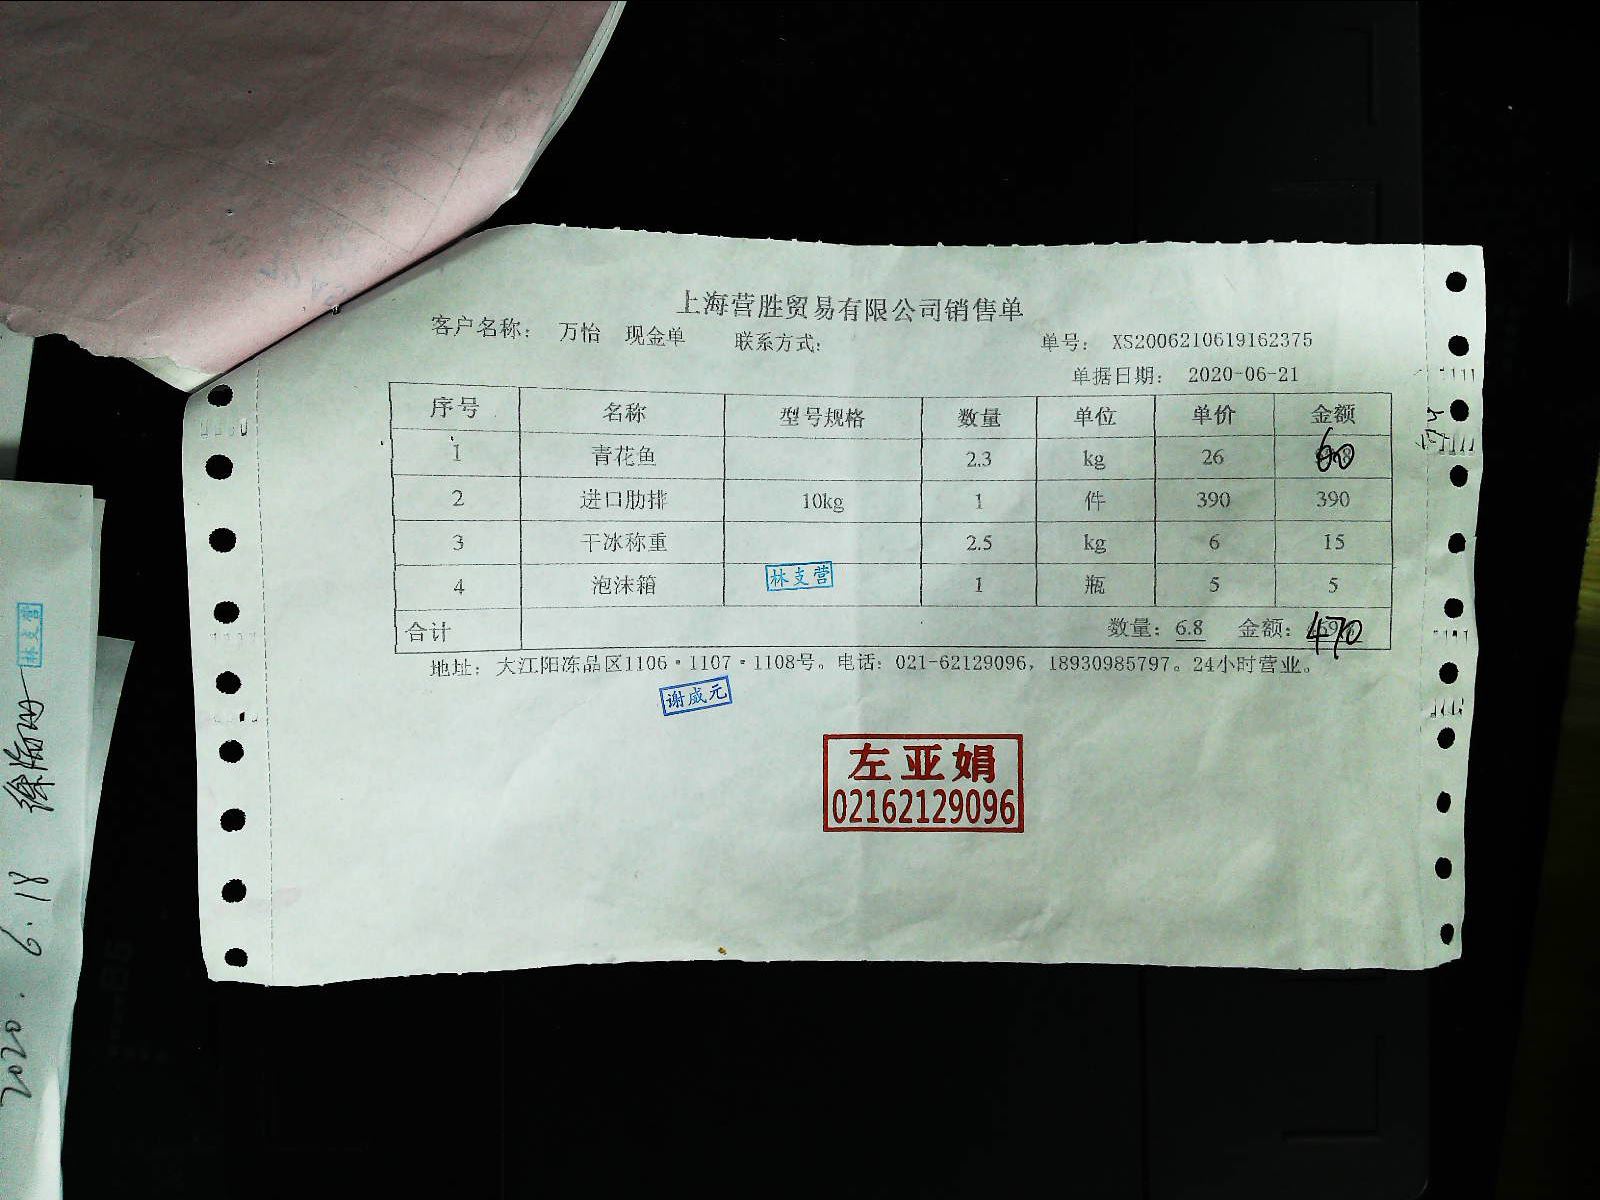 上海营胜贸易有限公司销售单
客户名称： 万怡 现金单 联系方式： 单号： XS2006210619162375
单据日期： 2020-06-21
序号 名称 型号规格 数量 单位 单价 金额
1 青花鱼 2.3 kg 26 60
2 进口肋排 10kg 1 件 390 390
3 干冰称重 2.5 kg 6 15
4 泡沫箱 林支营 1 瓶 5 5
合计 数量：6.8 金额：470
地址：大江阳冻品区1106·1107·1108号。电话：021-62129096，18930985797。24小时营业。
谢成元
左亚娟
02162129096
林支营
2020.6.18